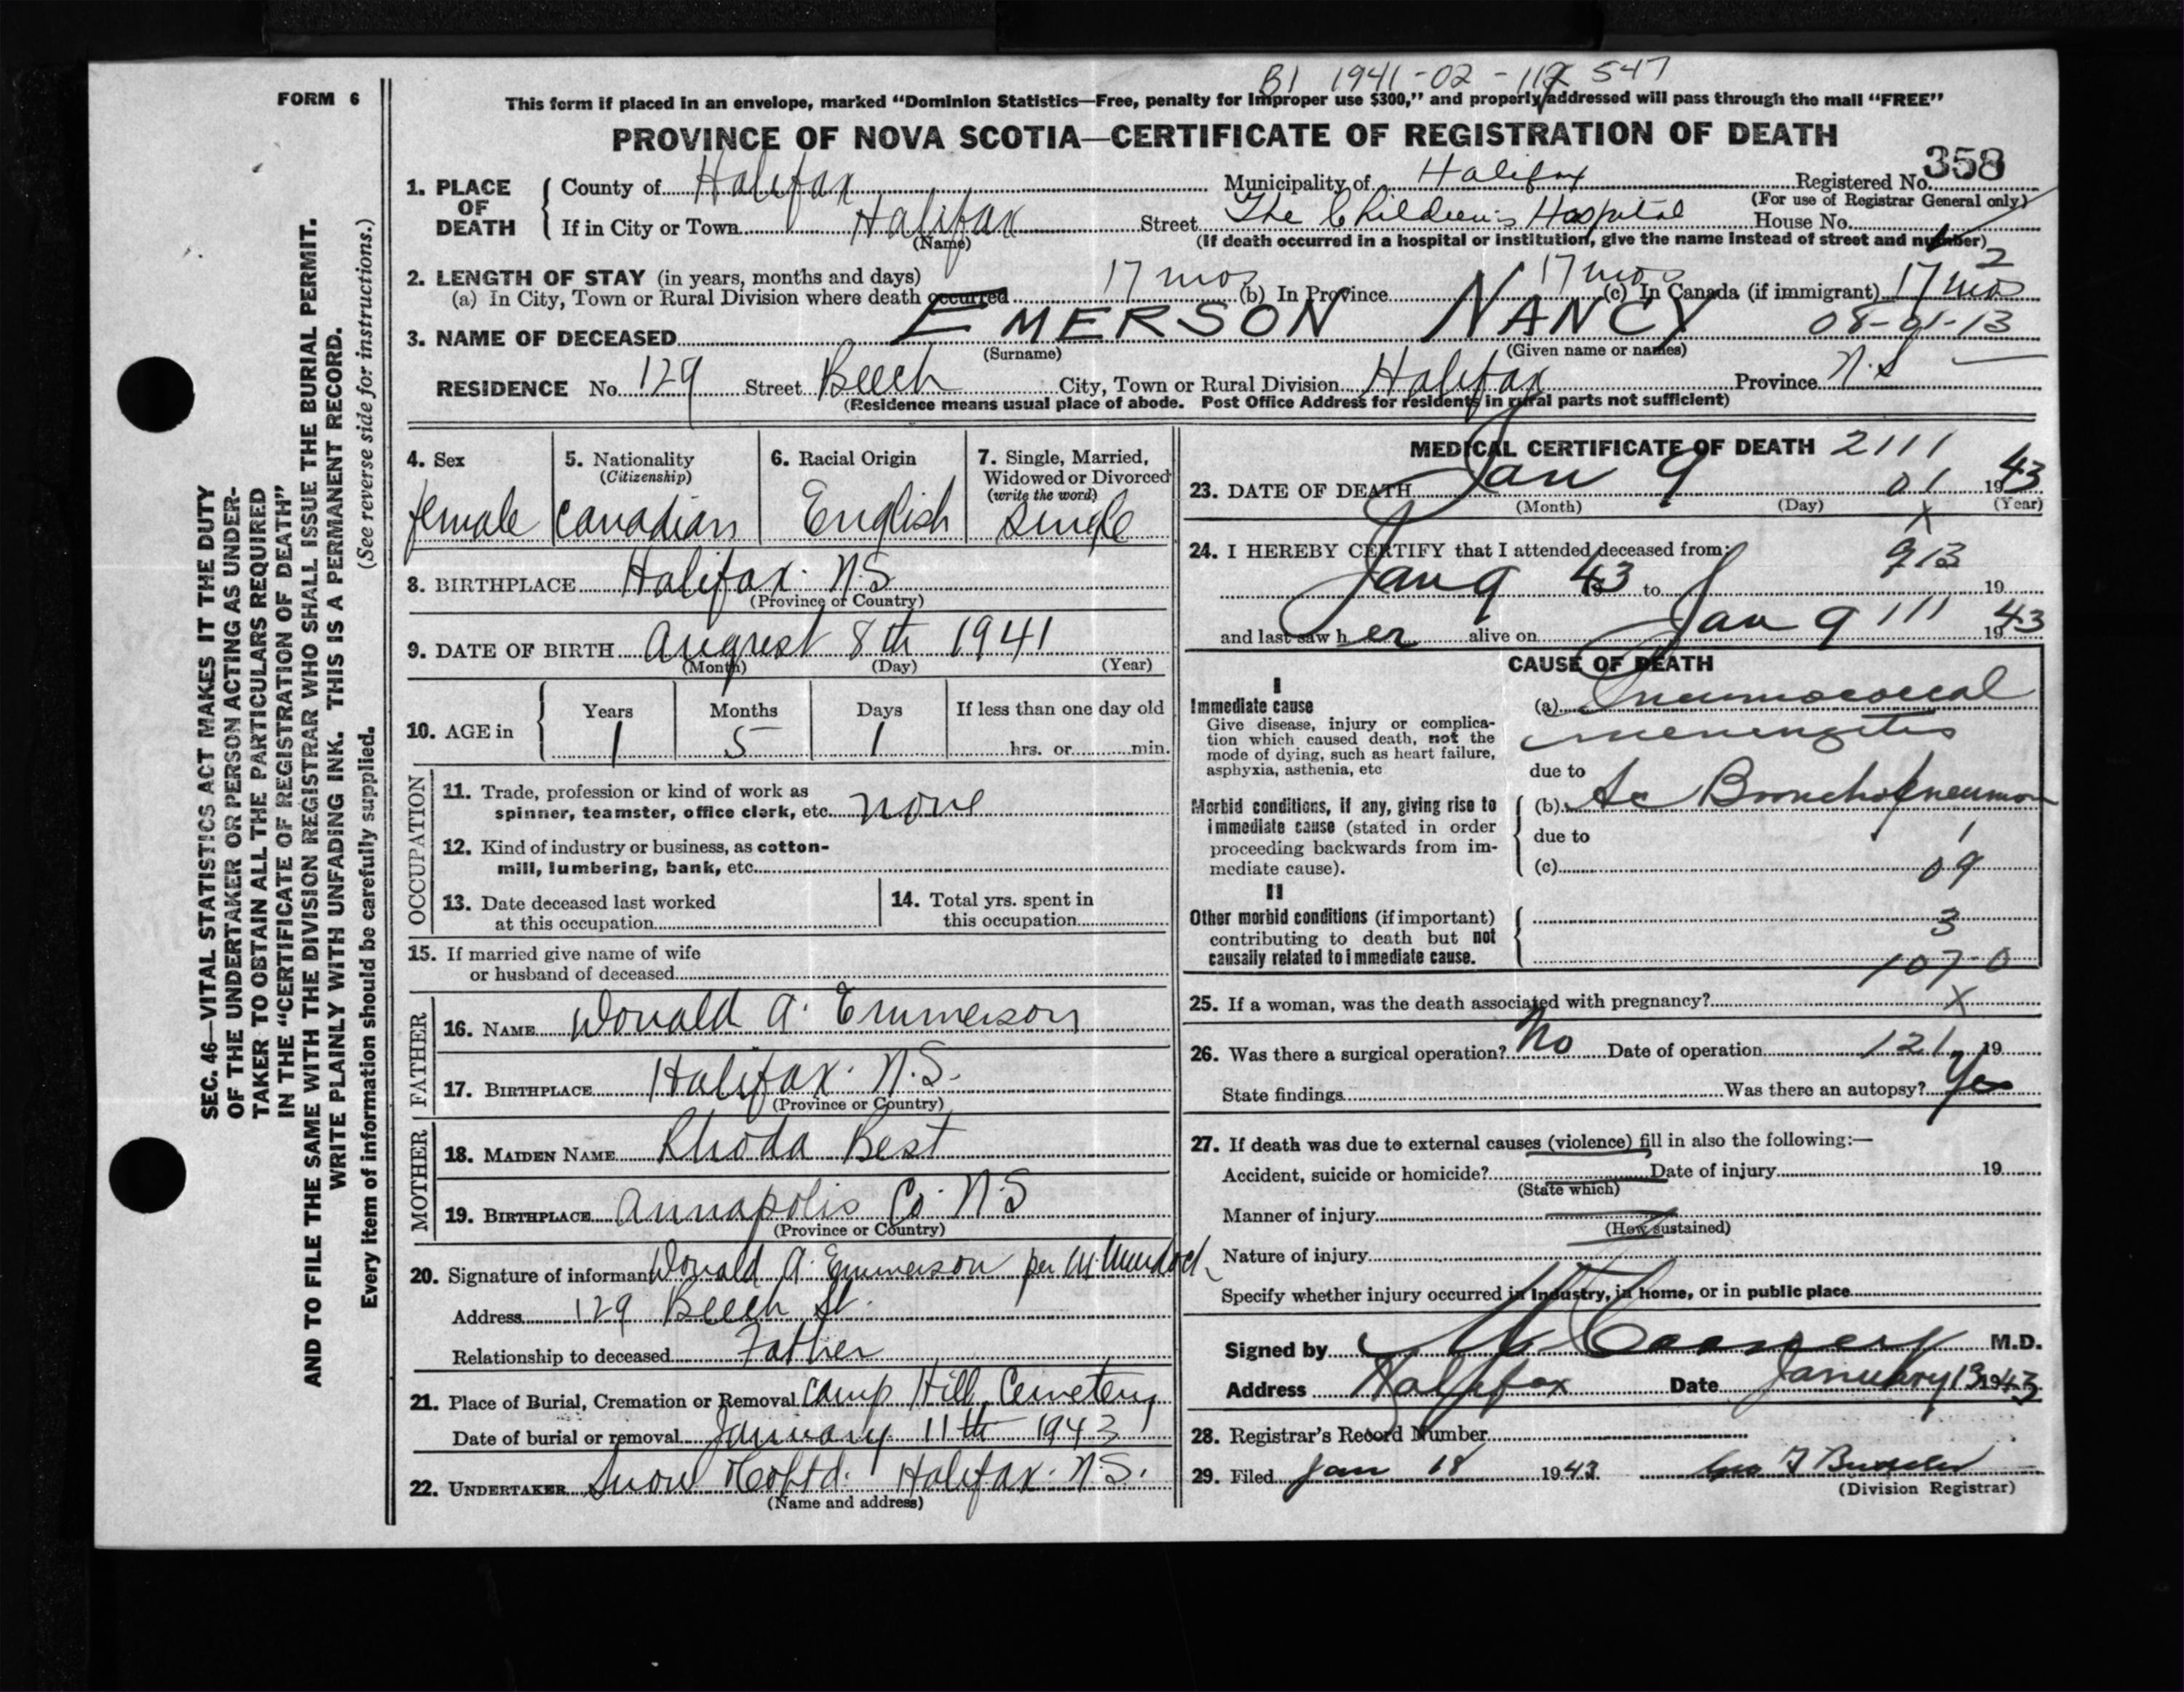 B1 1941-02-117 547
FORM 6
This form if placed in an envelope, marked "Dominion Statistics—Free, penalty for improper use $300," and properly addressed will pass through the mail "FREE"
PROVINCE OF NOVA SCOTIA—CERTIFICATE OF REGISTRATION OF DEATH
358
1. PLACE OF DEATH
County of Halifax Municipality of Halifax Registered No.
(For use of Registrar General only)
If in City or Town Halifax Street The Children's Hospital House No.
(Name) (If death occurred in a hospital or institution, give the name instead of street and number)
2
2. LENGTH OF STAY (in years, months and days)
(a) In City, Town or Rural Division where death occurred 17 mos (b) In Province 17 mos (c) In Canada (if immigrant) 17 mos
3. NAME OF DECEASED EMERSON NANCY 08-01-13
(Surname) (Given name or names)
RESIDENCE No. 129 Street Beech City, Town or Rural Division Halifax Province N.S
(Residence means usual place of abode. Post Office Address for residents in rural parts not sufficient)
4. Sex
female
5. Nationality
(Citizenship)
Canadian
6. Racial Origin
English
7. Single, Married,
Widowed or Divorced
(write the word)
single
8. BIRTHPLACE Halifax. N.S
(Province or Country)
9. DATE OF BIRTH August 8th 1941
(Month) (Day) (Year)
10. AGE in
Years Months Days If less than one day old
1 5 1 hrs. or min.
OCCUPATION
11. Trade, profession or kind of work as
spinner, teamster, office clerk, etc. none
12. Kind of industry or business, as cotton-
mill, lumbering, bank, etc.
13. Date deceased last worked
at this occupation
14. Total yrs. spent in
this occupation
15. If married give name of wife
or husband of deceased
FATHER
16. NAME Donald A. Emmerson
17. BIRTHPLACE Halifax. N.S.
(Province or Country)
MOTHER
18. MAIDEN NAME Rhoda Best
19. BIRTHPLACE Annapolis Co. N.S
(Province or Country)
20. Signature of informant Donald A. Emmerson per M. Murdoch
Address 129 Beech St.
Relationship to deceased Father
21. Place of Burial, Cremation or Removal Camp Hill Cemetery
Date of burial or removal January 11th 1943
22. UNDERTAKER Snow & Co Ltd. Halifax. N.S.
(Name and address)
MEDICAL CERTIFICATE OF DEATH 2111
23. DATE OF DEATH Jan 9 01 1943
(Month) (Day) (Year)
X
24. I HEREBY CERTIFY that I attended deceased from:
913
Jan 9 43 to 19
and last saw her alive on Jan 9 111 1943
CAUSE OF DEATH
I
Immediate cause
Give disease, injury or complica-
tion which caused death, not the
mode of dying, such as heart failure,
asphyxia, asthenia, etc
(a) Pneumococcal
meningitis
due to
Morbid conditions, if any, giving rise to
immediate cause (stated in order
proceeding backwards from im-
mediate cause).
(b) Ac Bronchopneumon
due to 1
(c) 09
II
Other morbid conditions (if important)
contributing to death but not
causally related to immediate cause.
3
107-0
25. If a woman, was the death associated with pregnancy? X
26. Was there a surgical operation? No Date of operation 121 19
State findings Was there an autopsy? Yes
27. If death was due to external causes (violence) fill in also the following:—
Accident, suicide or homicide? Date of injury 19
(State which)
Manner of injury
(How sustained)
Nature of injury
Specify whether injury occurred in industry, in home, or in public place
Signed by M.D.
Address Halifax Date January 13 1943
28. Registrar's Record Number
29. Filed Jan 18 1943
(Division Registrar)
SEC. 46—VITAL STATISTICS ACT MAKES IT THE DUTY
OF THE UNDERTAKER OR PERSON ACTING AS UNDER-
TAKER TO OBTAIN ALL THE PARTICULARS REQUIRED
IN THE "CERTIFICATE OF REGISTRATION OF DEATH"
AND TO FILE THE SAME WITH THE DIVISION REGISTRAR WHO SHALL ISSUE THE BURIAL PERMIT.
WRITE PLAINLY WITH UNFADING INK. THIS IS A PERMANENT RECORD.
(See reverse side for instructions.)
Every item of information should be carefully supplied.